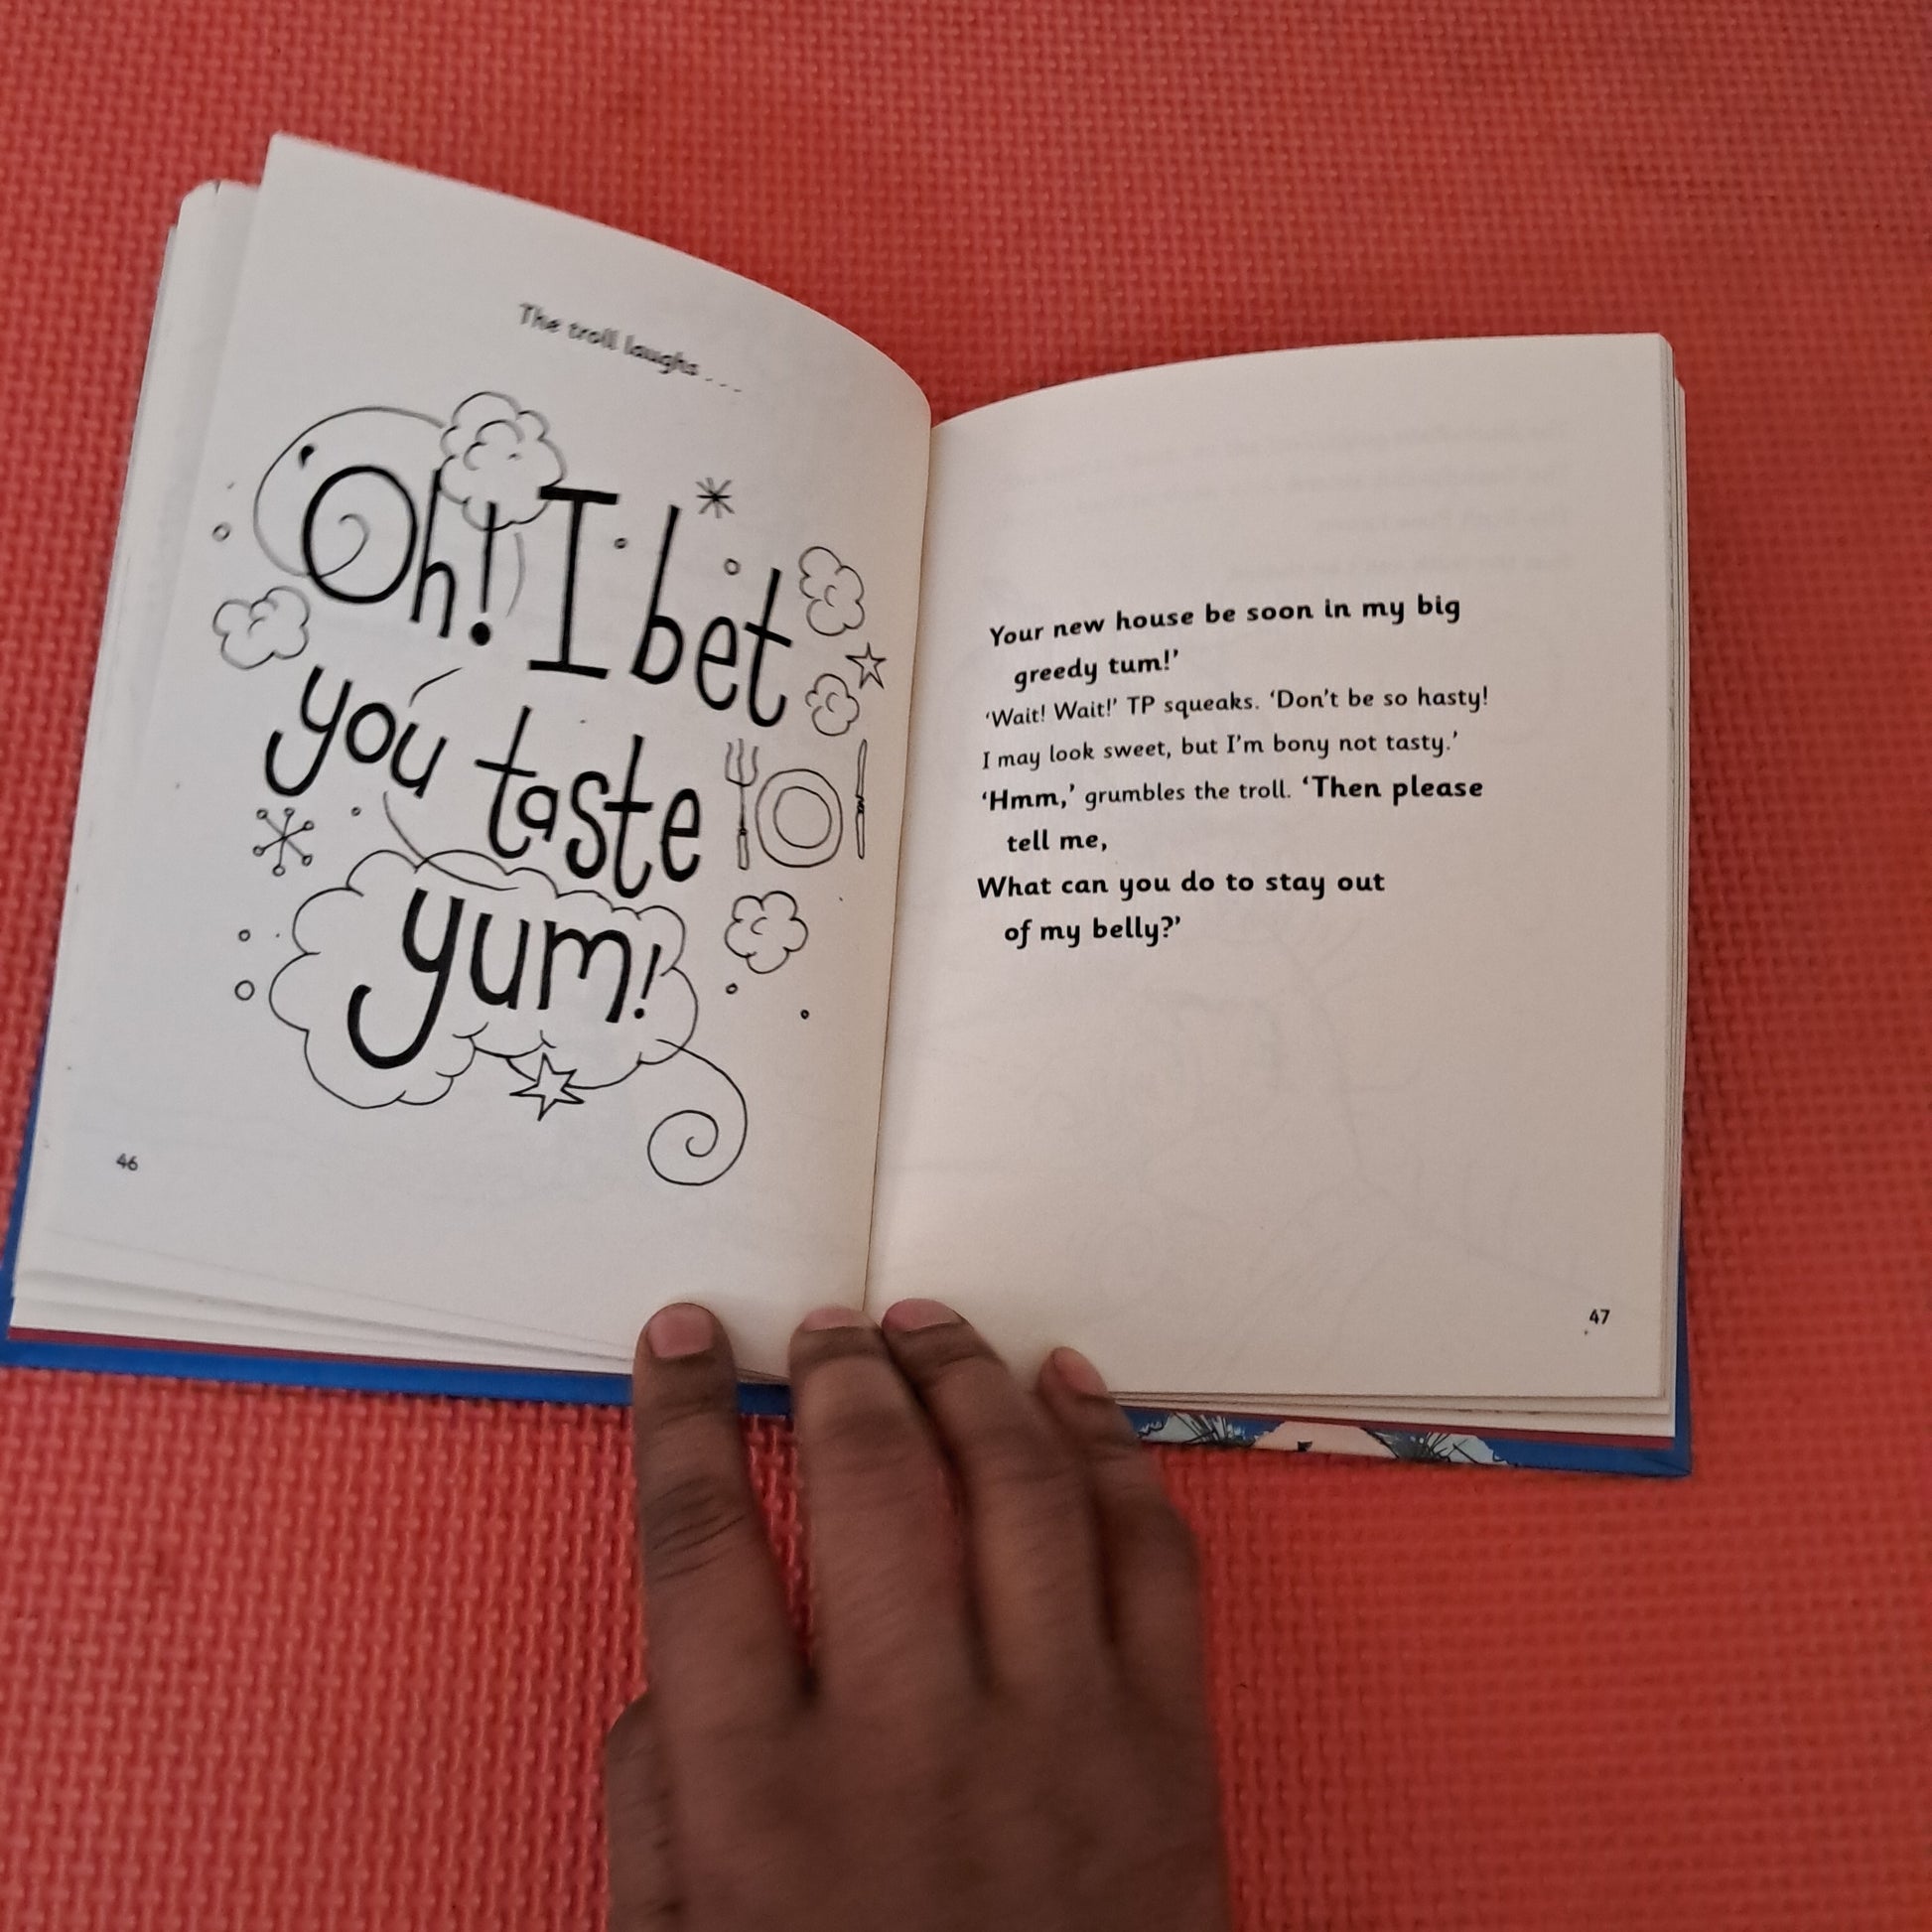 The troll laughs . . .
'Oh! I bet
you taste
yum!
46
Your new house be soon in my big
greedy tum!’
‘Wait! Wait!’ TP squeaks. ‘Don’t be so hasty!
I may look sweet, but I’m bony not tasty.’
‘Hmm,’ grumbles the troll. ‘Then please
tell me,
What can you do to stay out
of my belly?’
47